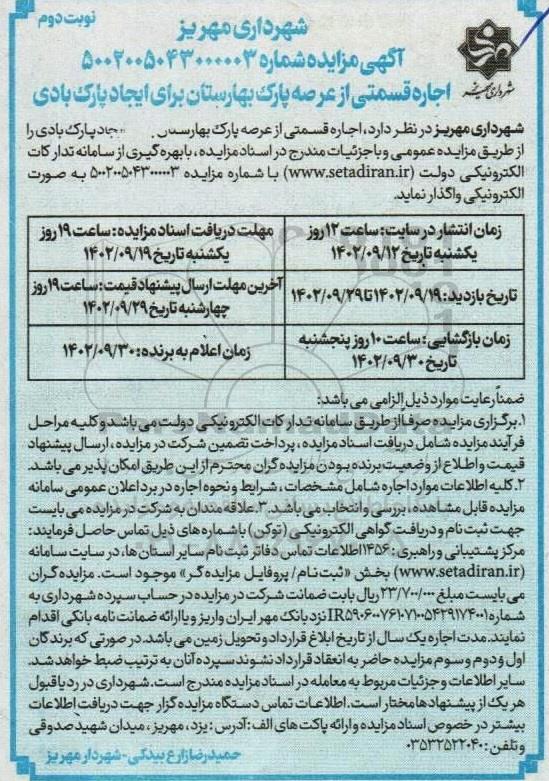 نوبت دوم
شهرداری مهریز
آگهی مزایده شماره ۵۰۰۲۰۰۵۰۴۳۰۰۰۰۰۳
اجاره قسمتی از عرصه پارک بهارستان برای ایجاد پارک بادی
شهرداری مهریز
شهرداری مهریز در نظر دارد، اجاره قسمتی از عرصه پارک بهارستان جاد پارک بادی را
از طریق مزایده عمومی و با جزئیات مندرج در اسناد مزایده، با بهره گیری از سامانه تدارکات
الکترونیکی دولت (www.setadiran.ir) با شماره مزایده ۵۰۰۲۰۰۵۰۴۳۰۰۰۰۰۳ به صورت
الکترونیکی واگذار نماید.
زمان انتشار در سایت: ساعت ۱۲ روز یکشنبه تاریخ ۱۴۰۲/۰۹/۱۲
مهلت دریافت اسناد مزایده: ساعت ۱۹ روز یکشنبه تاریخ ۱۴۰۲/۰۹/۱۹
تاریخ بازدید: ۱۴۰۲/۰۹/۱۹ تا ۱۴۰۲/۰۹/۲۹
آخرین مهلت ارسال پیشنهاد قیمت: ساعت ۱۹ روز چهارشنبه تاریخ ۱۴۰۲/۰۹/۲۹
زمان بازگشایی: ساعت ۱۰ روز پنجشنبه تاریخ ۱۴۰۲/۰۹/۳۰
زمان اعلام به برنده: ۱۴۰۲/۰۹/۳۰
ضمناً رعایت موارد ذیل الزامی می باشد:
۱. برگزاری مزایده صرفاً از طریق سامانه تدارکات الکترونیکی دولت می باشد و کلیه مراحل
فرآیند مزایده شامل دریافت اسناد مزایده، پرداخت تضمین شرکت در مزایده، ارسال پیشنهاد
قیمت و اطلاع از وضعیت برنده بودن مزایده گران محترم از این طریق امکان پذیر می باشد.
۲. کلیه اطلاعات موارد اجاره شامل مشخصات، شرایط و نحوه اجاره در برد اعلان عمومی سامانه
مزایده قابل مشاهده، بررسی و انتخاب می باشد. ۳. علاقه مندان به شرکت در مزایده می بایست
جهت ثبت نام و دریافت گواهی الکترونیکی (توکن) با شماره های ذیل تماس حاصل فرمایند:
مرکز پشتیبانی و راهبری: ۱۴۵۶ اطلاعات تماس دفاتر ثبت نام سایر استان ها، در سایت سامانه
(www.setadiran.ir) بخش «ثبت نام / پروفایل مزایده گر» موجود است. مزایده گران
می بایست مبلغ ۲۳/۷۰۰/۰۰۰ ریال بابت ضمانت شرکت در مزایده در حساب سپرده شهرداری به
شماره IR۵۹۰۶۰۰۷۶۱۰۷۱۰۰۵۴۲۹۱۷۴۰۰۱ نزد بانک مهر ایران واریز و یا ارائه ضمانت نامه بانکی اقدام
نمایند. مدت اجاره یک سال از تاریخ ابلاغ قرارداد و تحویل زمین می باشد. در صورتی که برندگان
اول و دوم و سوم مزایده حاضر به انعقاد قرارداد نشوند سپرده آنان به ترتیب ضبط خواهد شد.
سایر اطلاعات و جزئیات مربوط به معامله در اسناد مزایده مندرج است. شهرداری در رد یا قبول
هر یک از پیشنهادها مختار است. اطلاعات تماس دستگاه مزایده گزار جهت دریافت اطلاعات
بیشتر در خصوص اسناد مزایده و ارائه پاکت های الف: آدرس: یزد، مهریز، میدان شهید صدوقی
و تلفن: ۰۳۵۳۲۵۲۲۰۴۰
حمیدرضا زارع بیدکی - شهردار مهریز